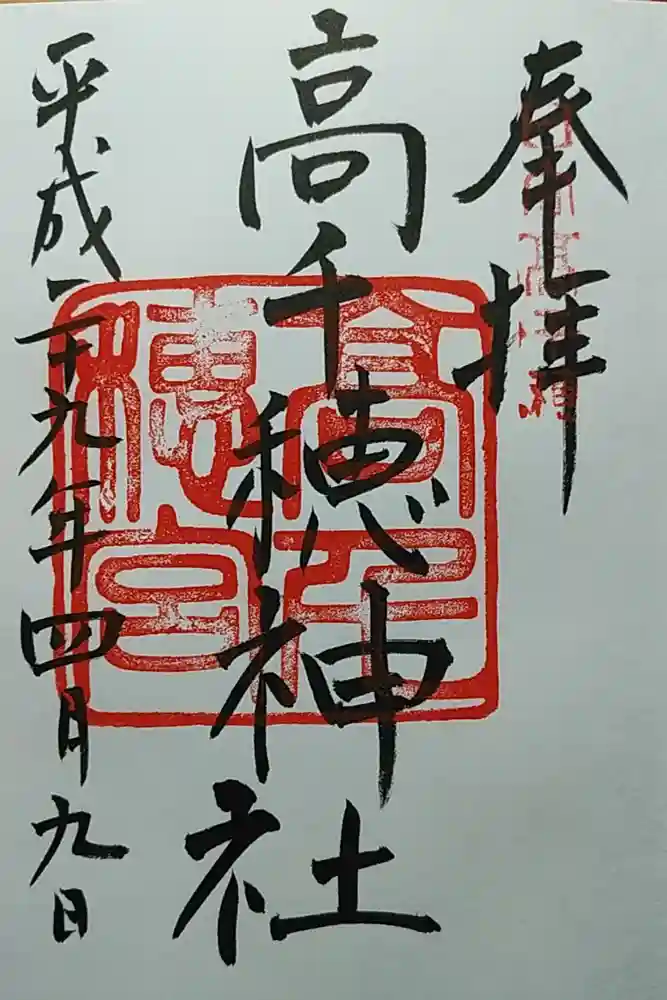 奉拝
高千穂神社
平成二十九年四月九日
高千穂宮